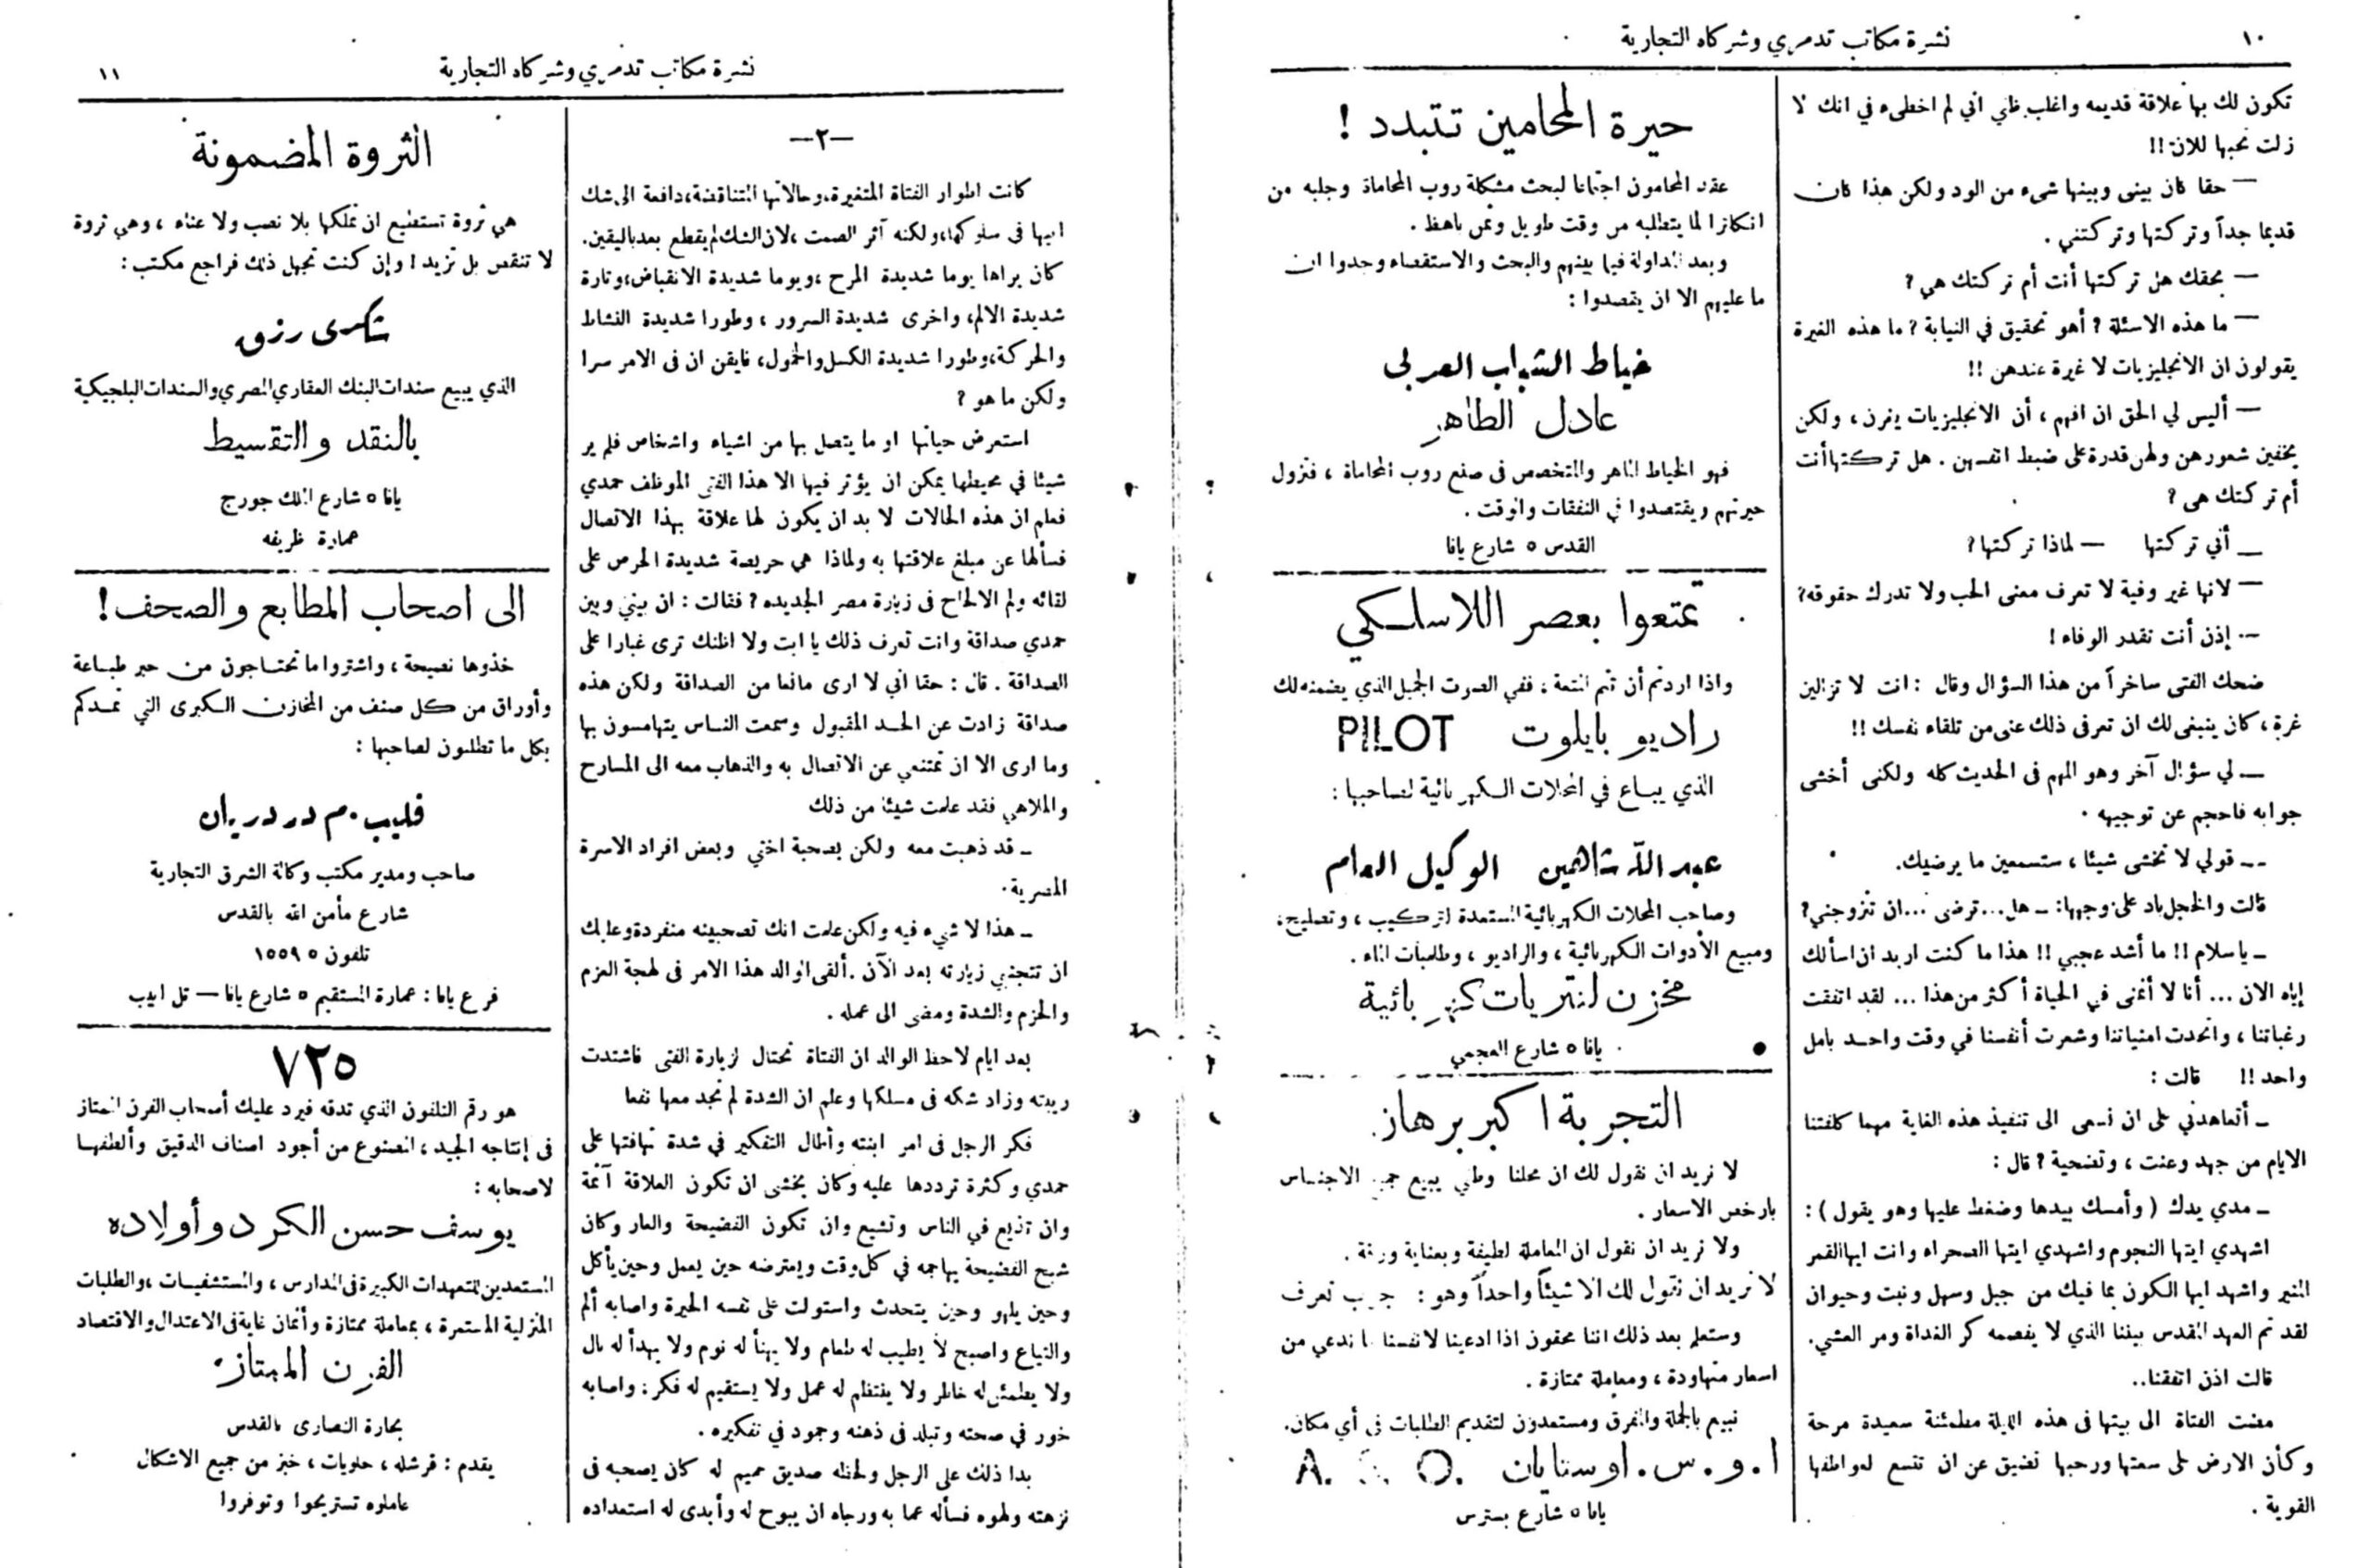 ١٠
نشرة مكاتب تدمري وشركاه التجارية
تكون لك بها علاقة قديمه واغلب ظني اني لم اخطىء في انك لا
زلت تحبها للآن!!
— حقا كان بينى وبينها شىء من الود ولكن هذا كان
قديما جداً وتركتها وتركتني .
— بحقك هل تركتها أنت أم تركتك هي ؟
— ما هذه الاسئلة ؟ أهو تحقيق في النيابة ؟ ما هذه الغيرة
يقولون ان الانجليزيات لا غيرة عندهن !!
— أليس لي الحق ان افهم ، أن الانجليزيات يغرن ، ولكن
يخفين شعورهن ولهن قدرة على ضبط انفسهن . هل تركتها أنت
أم تركتك هى ؟
— أني تركتها — لماذا تركتها ؟
— لانها غير وفية لا تعرف معنى الحب ولا تدرك حقوقه ؟
— إذن أنت تقدر الوفاء !
ضحك الفتى ساخراً من هذا السؤال وقال : انت لا تزالين
غرة ، كان ينبغى لك ان تعرفى ذلك عنى من تلقاء نفسك !!
— لي سؤال آخر وهو المهم فى الحديث كله ولكنى أخشى
جوابه فاحجم عن توجيهه .
— قولي لا تخشى شيئا ، ستسمعين ما يرضيك .
قالت والخجل باد على وجهها : ـ هل... ترضى ... ان تتزوجني ؟
ـ ياسلام !! ما أشد عجبي !! هذا ما كنت اريد ان اسألك
إياه الان ... أنا لا أتمنى في الحياة أكثر من هذا ... لقد اتفقت
رغباتنا ، واتحدت امنياتنا وشعرت أنفسنا في وقت واحد بامل
واحد !! قالت :
ـ أتعاهدني على ان نسعى الى تنفيذ هذه الغاية مهما كلفتنا
الايام من جهد وعنت ، وتضحية ؟ قال :
ـ مدي يدك ( وأمسك بيدها وضغط عليها وهو يقول ) :
اشهدي ايتها النجوم واشهدي ايتها الصحراء وانت ايها القمر
المنير واشهد ايها الكون بما فيك من جبل وسهل ونبت وحيوان
لقد تم العهد المقدس بيننا الذي لا يفصمه كر الغداة ومر العشي .
قالت اذن اتفقنا..
مضت الفتاة الى بيتها فى هذه الليلة مطمئنة سعيدة مرحة
وكأن الارض على سعتها ورحبها تضيق عن ان تتسع لعواطفها
القوية .
حيرة المحامين تتبدد !
عقد المحامون اجتماعا لبحث مشكلة روب المحاماة وجلبه من
انكلترا لما يتطلبه من وقت طويل وثمن باهظ .
وبعد المداولة فيما بينهم والبحث والاستقصاء وجدوا ان
ما عليهم الا ان يقصدوا :
خياط الشباب العربي
عادل الطاهر
فهو الخياط الماهر والمتخصص فى صنع روب المحاماة ، فتزول
حيرتهم ويقتصدوا في النفقات والوقت .
القدس ٥ شارع يافا
تمتعوا بعصر اللاسلكي
واذا اردتم أن تتم المتعة ، ففي الصوت الجميل الذي يضمنه لك
راديو بايلوت PILOT
الذي يباع في المحلات الكهربائية لصاحبها :
عبد الله شاهين الوكيل العام
وصاحب المحلات الكهربائية المستعدة لتركيب ، وتصليح ،
ومبيع الأدوات الكهربائية ، والراديو ، وطلمبات الماء .
مخزن لنتريات كهربائية
يافا ٥ شارع العجمي
التجربة اكبر برهان
لا نريد ان نقول لك ان محلنا وطني يبيع جميع الاجناس
بارخص الاسعار .
ولا نريد ان نقول ان المعاملة لطيفة وبعناية ورقة .
لا نريد ان نقول لك الا شيئاً واحداً وهو : جرب تعرف
وستعلم بعد ذلك اننا محقون اذا ادعينا لانفسنا ما ندعي من
اسعار متهاودة ، ومعاملة ممتازة .
نبيع بالجملة والمفرق ومستعدون لتقديم الطلبات فى أي مكان .
ا . و . س . اوسنايان A. S. O.
يافا ٥ شارع بسترس
نشرة مكاتب تدمري وشركاه التجارية
١١
—٢—
كانت اطوار الفتاة المتغيرة، وحالاتها المتناقضة، دافعة الى شك
ابيها فى سلوكها، ولكنه آثر الصمت ، لان الشك لم يقطع بعد باليقين .
كان يراها يوما شديدة المرح ، ويوما شديدة الانقباض، وتارة
شديدة الالم، واخرى شديدة السرور ، وطورا شديدة النشاط
والحركة، وطورا شديدة الكسل والخمول، فايقن ان فى الامر سرا
ولكن ما هو ؟
استعرض حياتها او ما يتصل بها من اشياء واشخاص فلم ير
شيئا في محيطها يمكن ان يؤثر فيها الا هذا الفتى الموظف حمدي
فعلم ان هذه الحالات لا بد ان يكون لها علاقة بهذا الاتصال
فسألها عن مبلغ علاقتها به ولماذا هي حريصة شديدة الحرص على
لقائه ولم الالحاح فى زيارة مصر الجديده ؟ فقالت : ان بيني وبين
حمدي صداقة وانت تعرف ذلك يا ابت ولا اظنك ترى غبارا على
الصداقة . قال : حقا اني لا ارى مانعا من الصداقة ولكن هذه
صداقة زادت عن الحد المقبول وسمعت الناس يتهامسون بها
وما ارى الا ان تمتنعي عن الاتصال به والذهاب معه الى المسارح
والملاهي فقد علمت شيئا من ذلك
ـ قد ذهبت معه ولكن بصحبة اختي وبعض افراد الاسرة
المصرية .
ـ هذا لا شيء فيه ولكن علمت انك تصحبينه منفردة وعليك
ان تتجنبي زيارته بعد الآن . ألقى الوالد هذا الامر فى لهجة العزم
والحزم والشدة ومضى الى عمله .
بعد ايام لاحظ الوالد ان الفتاة تحتال لزيارة الفتى فاشتدت
ريبته وزاد شكه فى مسلكها وعلم ان الشدة لم تجد معها نفعا
فكر الرجل فى امر ابنته وأطال التفكير في شدة تهافتها على
حمدي وكثرة ترددها عليه وكان يخشى ان تكون العلاقة آثمة
وان تذيع في الناس وتشيع وان تكون الفضيحة والعار وكان
شبح الفضيحة يهاجمه في كل وقت ويعترضه حين يعمل وحين يأكل
وحين يلهو وحين يتحدث واستولت على نفسه الحيرة واصابه ألم
والتياع واصبح لا يطيب له طعام ولا يهنأ له نوم ولا يهدأ له بال
ولا يطمئن له خاطر ولا ينتظم له عمل ولا يستقيم له فكر ; واصابه
خور في صحته وتبلد فى ذهنه وجمود في تفكيره .
بدا ذلك على الرجل ولحظه صديق حميم له كان يصحبه فى
نزهته ولهوه فسأله عما به ورجاه ان يبوح له وأبدى له استعداده
الثروة المضمونة
هي ثروة تستطيع ان تملكها بلا نصب ولا عناء ، وهي ثروة
لا تنقص بل تزيد ! وإن كنت تجهل ذلك فراجع مكتب :
شكري رزق
الذي يبيع سندات البنك العقاري المصري والسندات البلجيكية
بالنقد والتقسيط
يافا ٥ شارع الملك جورج
عمارة ظريفه
الى اصحاب المطابع والصحف !
خذوها نصيحة ، واشتروا ما تحتاجون من حبر طباعة
وأوراق من كل صنف من المخازن الكبرى التي تمدكم
بكل ما تطلبون لصاحبها :
فليب . م دردريان
صاحب ومدير مكتب وكالة الشرق التجارية
شارع مأمن الله بالقدس
تلفون ١٥٥٩٥
فرع يافا : عمارة المستقيم ٥ شارع يافا — تل ابيب
٧٢٥
هو رقم التلفون الذي تدقه فيرد عليك أصحاب الفرن الممتاز
فى إنتاجه الجيد ، المصنوع من أجود اصناف الدقيق وألطفها
لاصحابه :
يوسف حسن الكرد وأولاده
المستعدين للتعهدات الكبيرة فى المدارس ، والمستشفيات ، والطلبات
المنزلية المستمرة ، بمعاملة ممتازة وأثمان غاية فى الاعتدال والاقتصاد
الفرن الممتاز
بحارة النصارى بالقدس
يقدم : قرشله ، حلويات ، خبز من جميع الاشكال
عاملوه تستريحوا وتوفروا